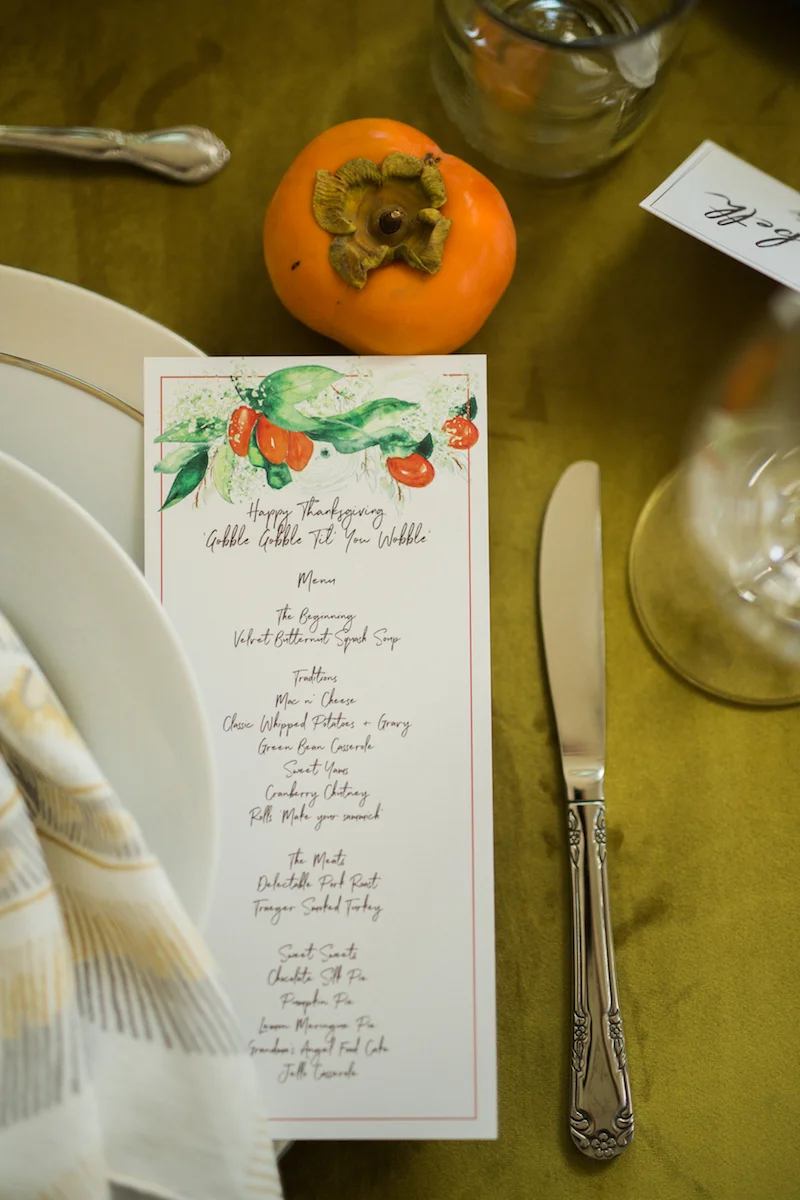 Happy Thanksgiving
'Gobble Gobble Til' You Wobble'
Menu
The Beginning
Velvet Butternut Squash Soup
Traditions
Mac n' Cheese
Classic Whipped Potatoes + Gravy
Green Bean Casserole
Sweet Yams
Cranberry Chutney
Rolls 'Make your sammich'
The Meats
Delectable Pork Roast
Traeger Smoked Turkey
Sweet Sweets
Chocolate Silk Pie
Pumpkin Pie
Lemon Meringue Pie
Grandma's Angel Food Cake
Jello Casserole